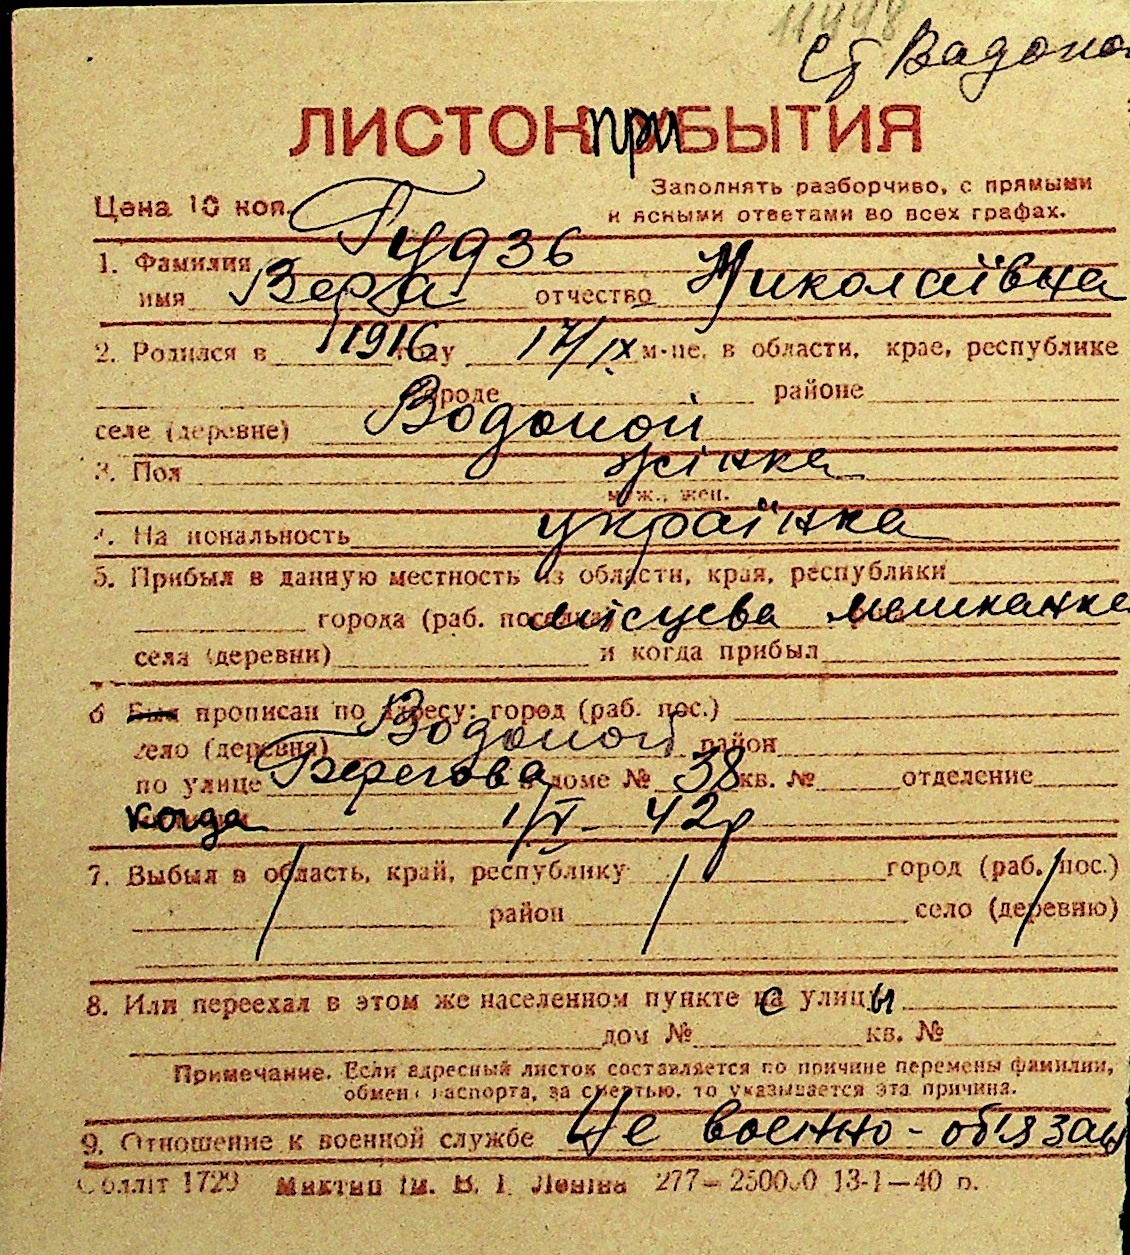 11448
ЛИСТОК ПРИБЫТИЯ
Цена 10 коп.
Заполнять разборчиво, с прямыми
и ясными ответами во всех графах.
1. Фамилия Гудзь
имя Вера отчество Миколаївна
2. Родился в 1916 году 17/IX м-це, в области, крае, республике
городе районе
селе (деревне) Водопой
3. Пол жінка
муж., жен.
4. Национальность українка
5. Прибыл в данную местность из области, края, республики
города (раб. поселка) місцева мешканка
села (деревни) и когда прибыл
6 Был прописан по адресу: город (раб. пос.)
село (деревня) Водопой район
по улице Берегова в доме № 38 кв. № отделение
когда 1/V - 42р
7. Выбыл в область, край, республику город (раб. пос.)
район село (деревню)
8. Или переехал в этом же населенном пункте с улицы
дом № кв. №
Примечание. Если адресный листок составляется по причине перемены фамилии,
обмена паспорта, за смертью, то указывается эта причина.
9. Отношение к военной службе Не военно-обязан
Обліт 1729 ім. В. І. Леніна 277—250000 13-1—40 р.